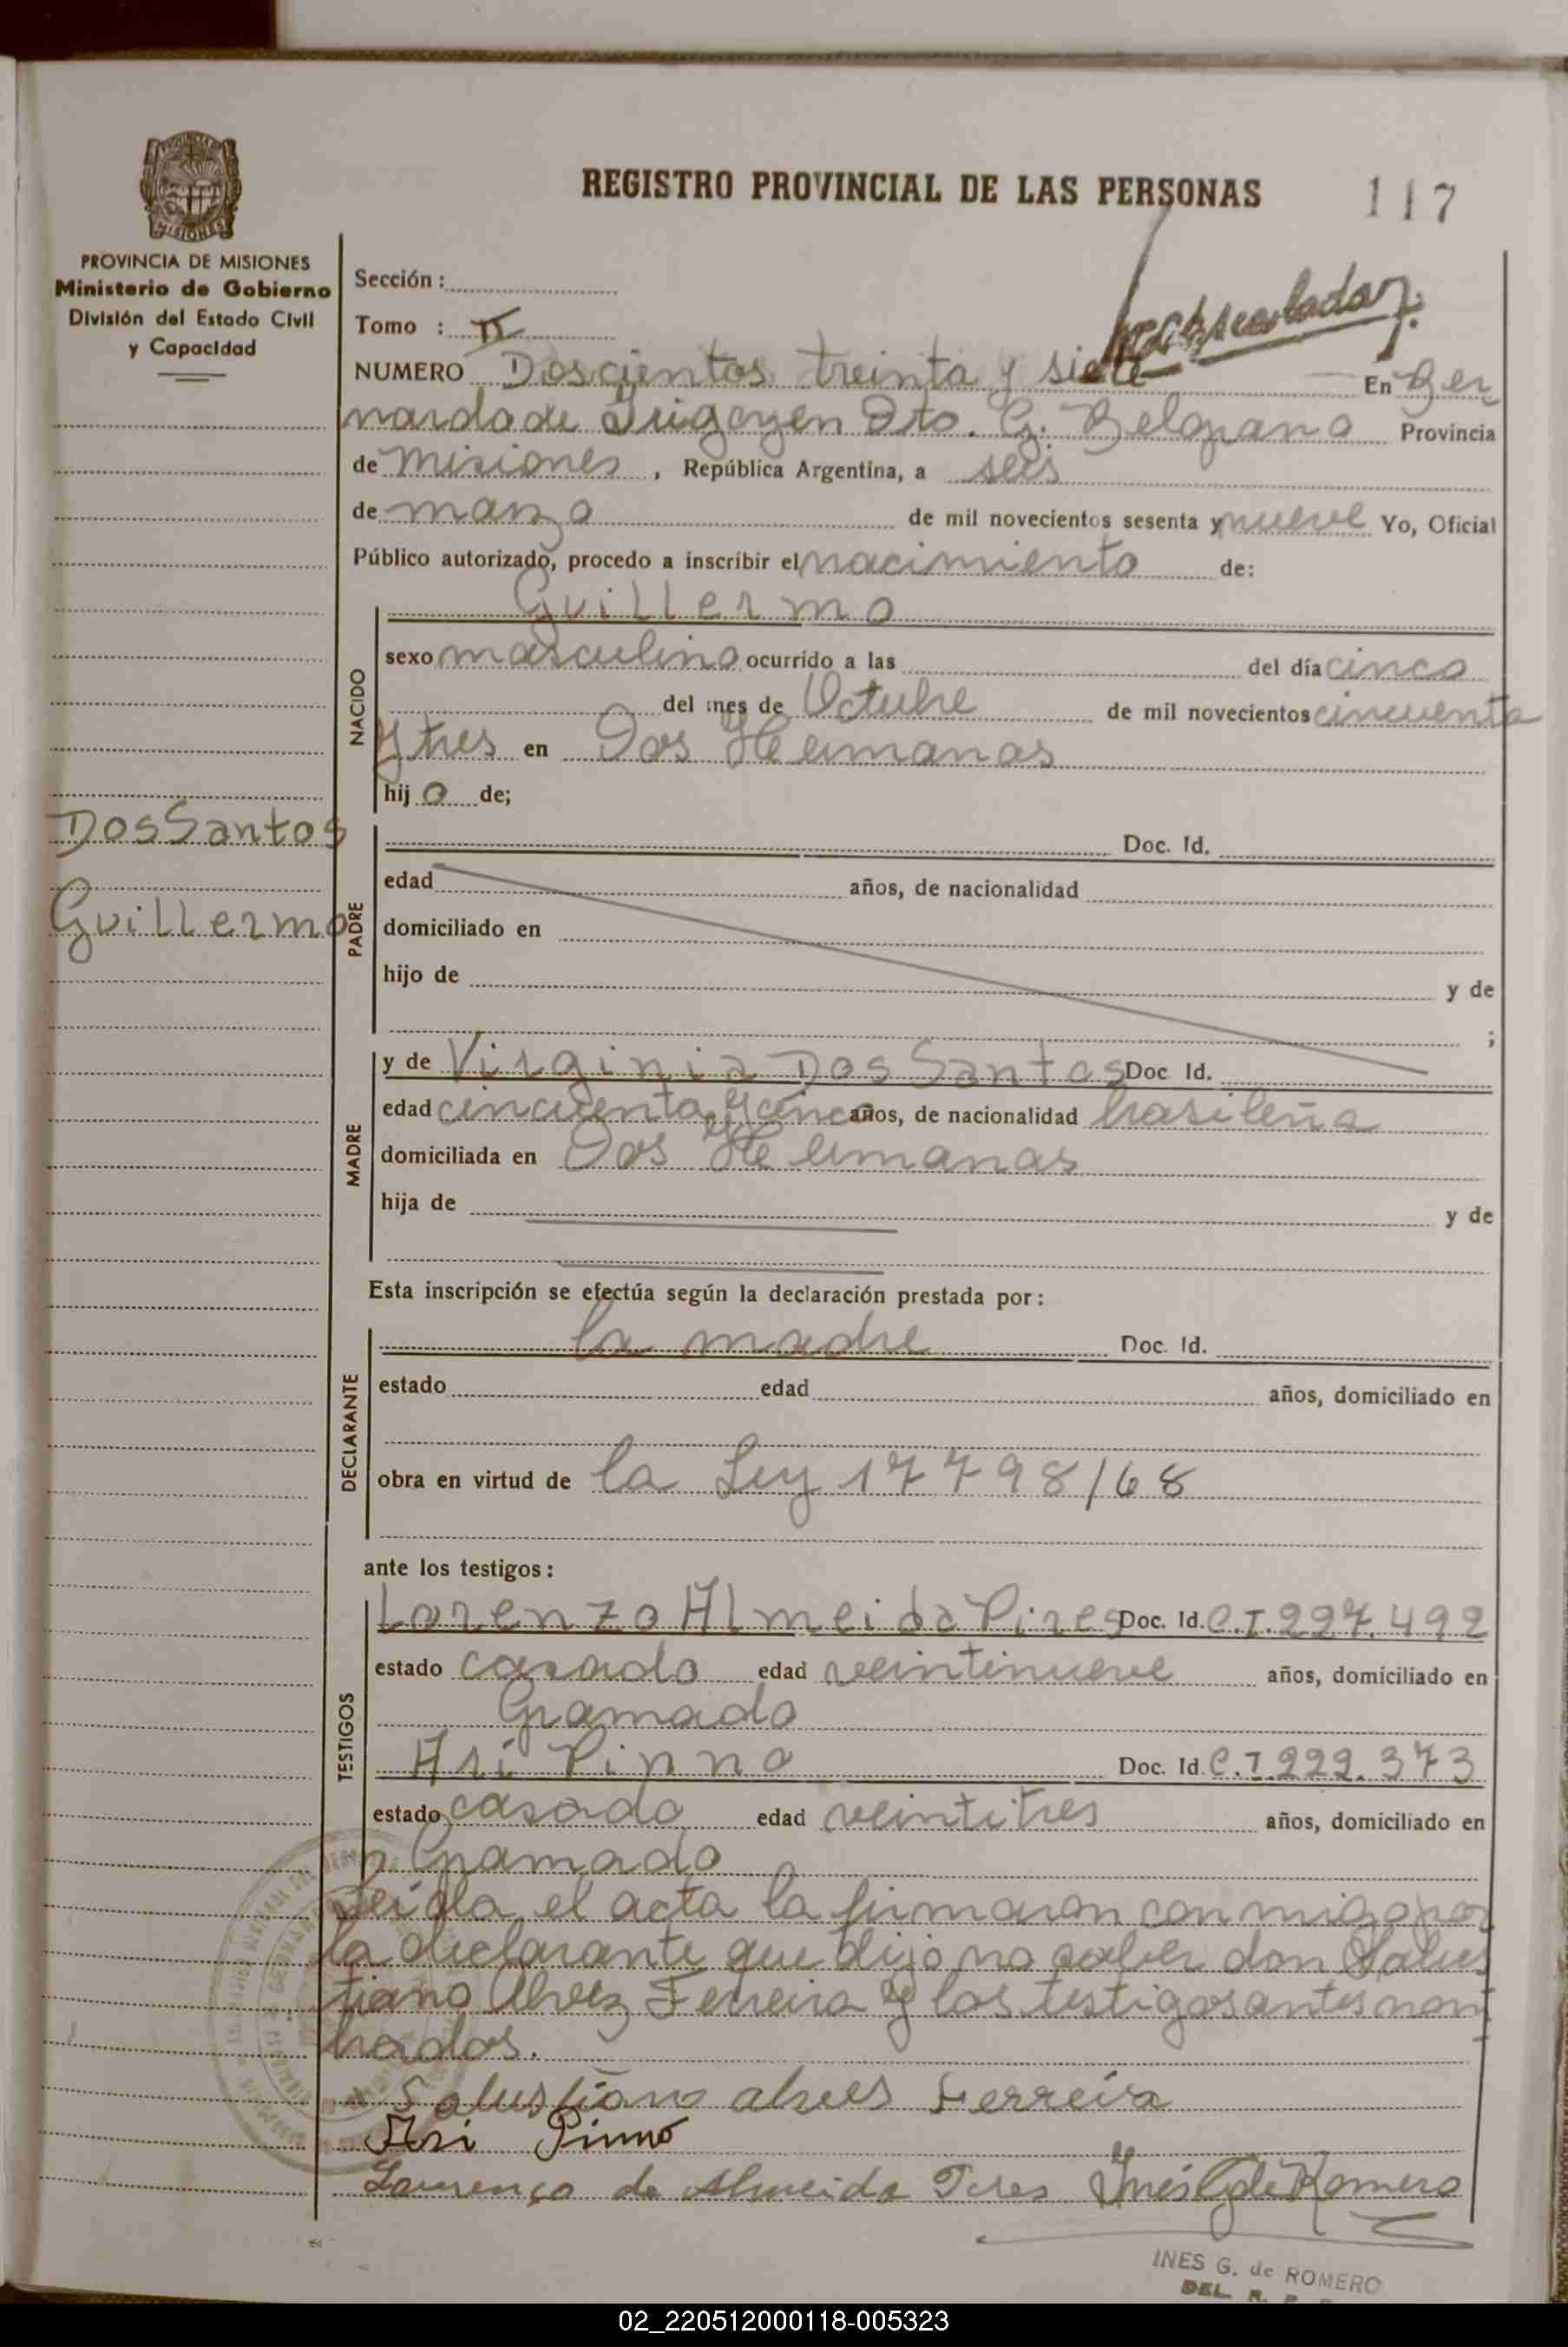 REGISTRO PROVINCIAL DE LAS PERSONAS
117
PROVINCIA DE MISIONES
Ministerio de Gobierno
División del Estado Civil
y Capacidad
Sección :
Tomo : II
NUMERO Doscientos treinta y siete En Ber
nardo de Irigoyen Dto. G. Belgrano Provincia
de Misiones, República Argentina, a seis
de marzo de mil novecientos sesenta y nueve Yo, Oficial
Público autorizado, procedo a inscribir el nacimiento de:
Guillermo
NACIDO
sexo masculino ocurrido a las del día cinco
del mes de Octubre de mil novecientos cincuenta
y tres en Dos Hermanas
hijo de;
Dos Santos
Guillermo
PADRE
Doc. Id.
edad años, de nacionalidad
domiciliado en
hijo de y de
;
MADRE
y de Virginia Dos Santos Doc Id.
edad cincuenta y cinco años, de nacionalidad brasileña
domiciliada en Dos Hermanas
hija de y de
Esta inscripción se efectúa según la declaración prestada por:
DECLARANTE
la madre Doc. Id.
estado edad años, domiciliado en
obra en virtud de la Ley 17798/68
ante los testigos:
TESTIGOS
Lorenzo Almeida Pires Doc. Id. C.I. 227.492
estado casado edad veintinueve años, domiciliado en
Gramado
Ari Pinno Doc. Id. C.I. 222.373
estado casado edad veintitres años, domiciliado en
Gramado
Leida el acta la firmaron con migo por
la declarante que dijo no saber don Salus
tiano Alvez Ferreira y los testigos antes nom
brados.
Salustiano alves Ferreira
Ari Pinno
Lourenço de Almeida Pires Inés G de Romero
INES G. de ROMERO
DEL. R. P.
02_220512000118-005323